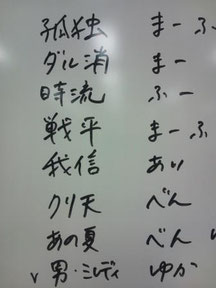 孤独 まーふ
ダル消 まー
時流 ふー
戦平 まーふ
我信 あい
クリ天 べん
あの夏 べん
v 男・ミレディ ゆか